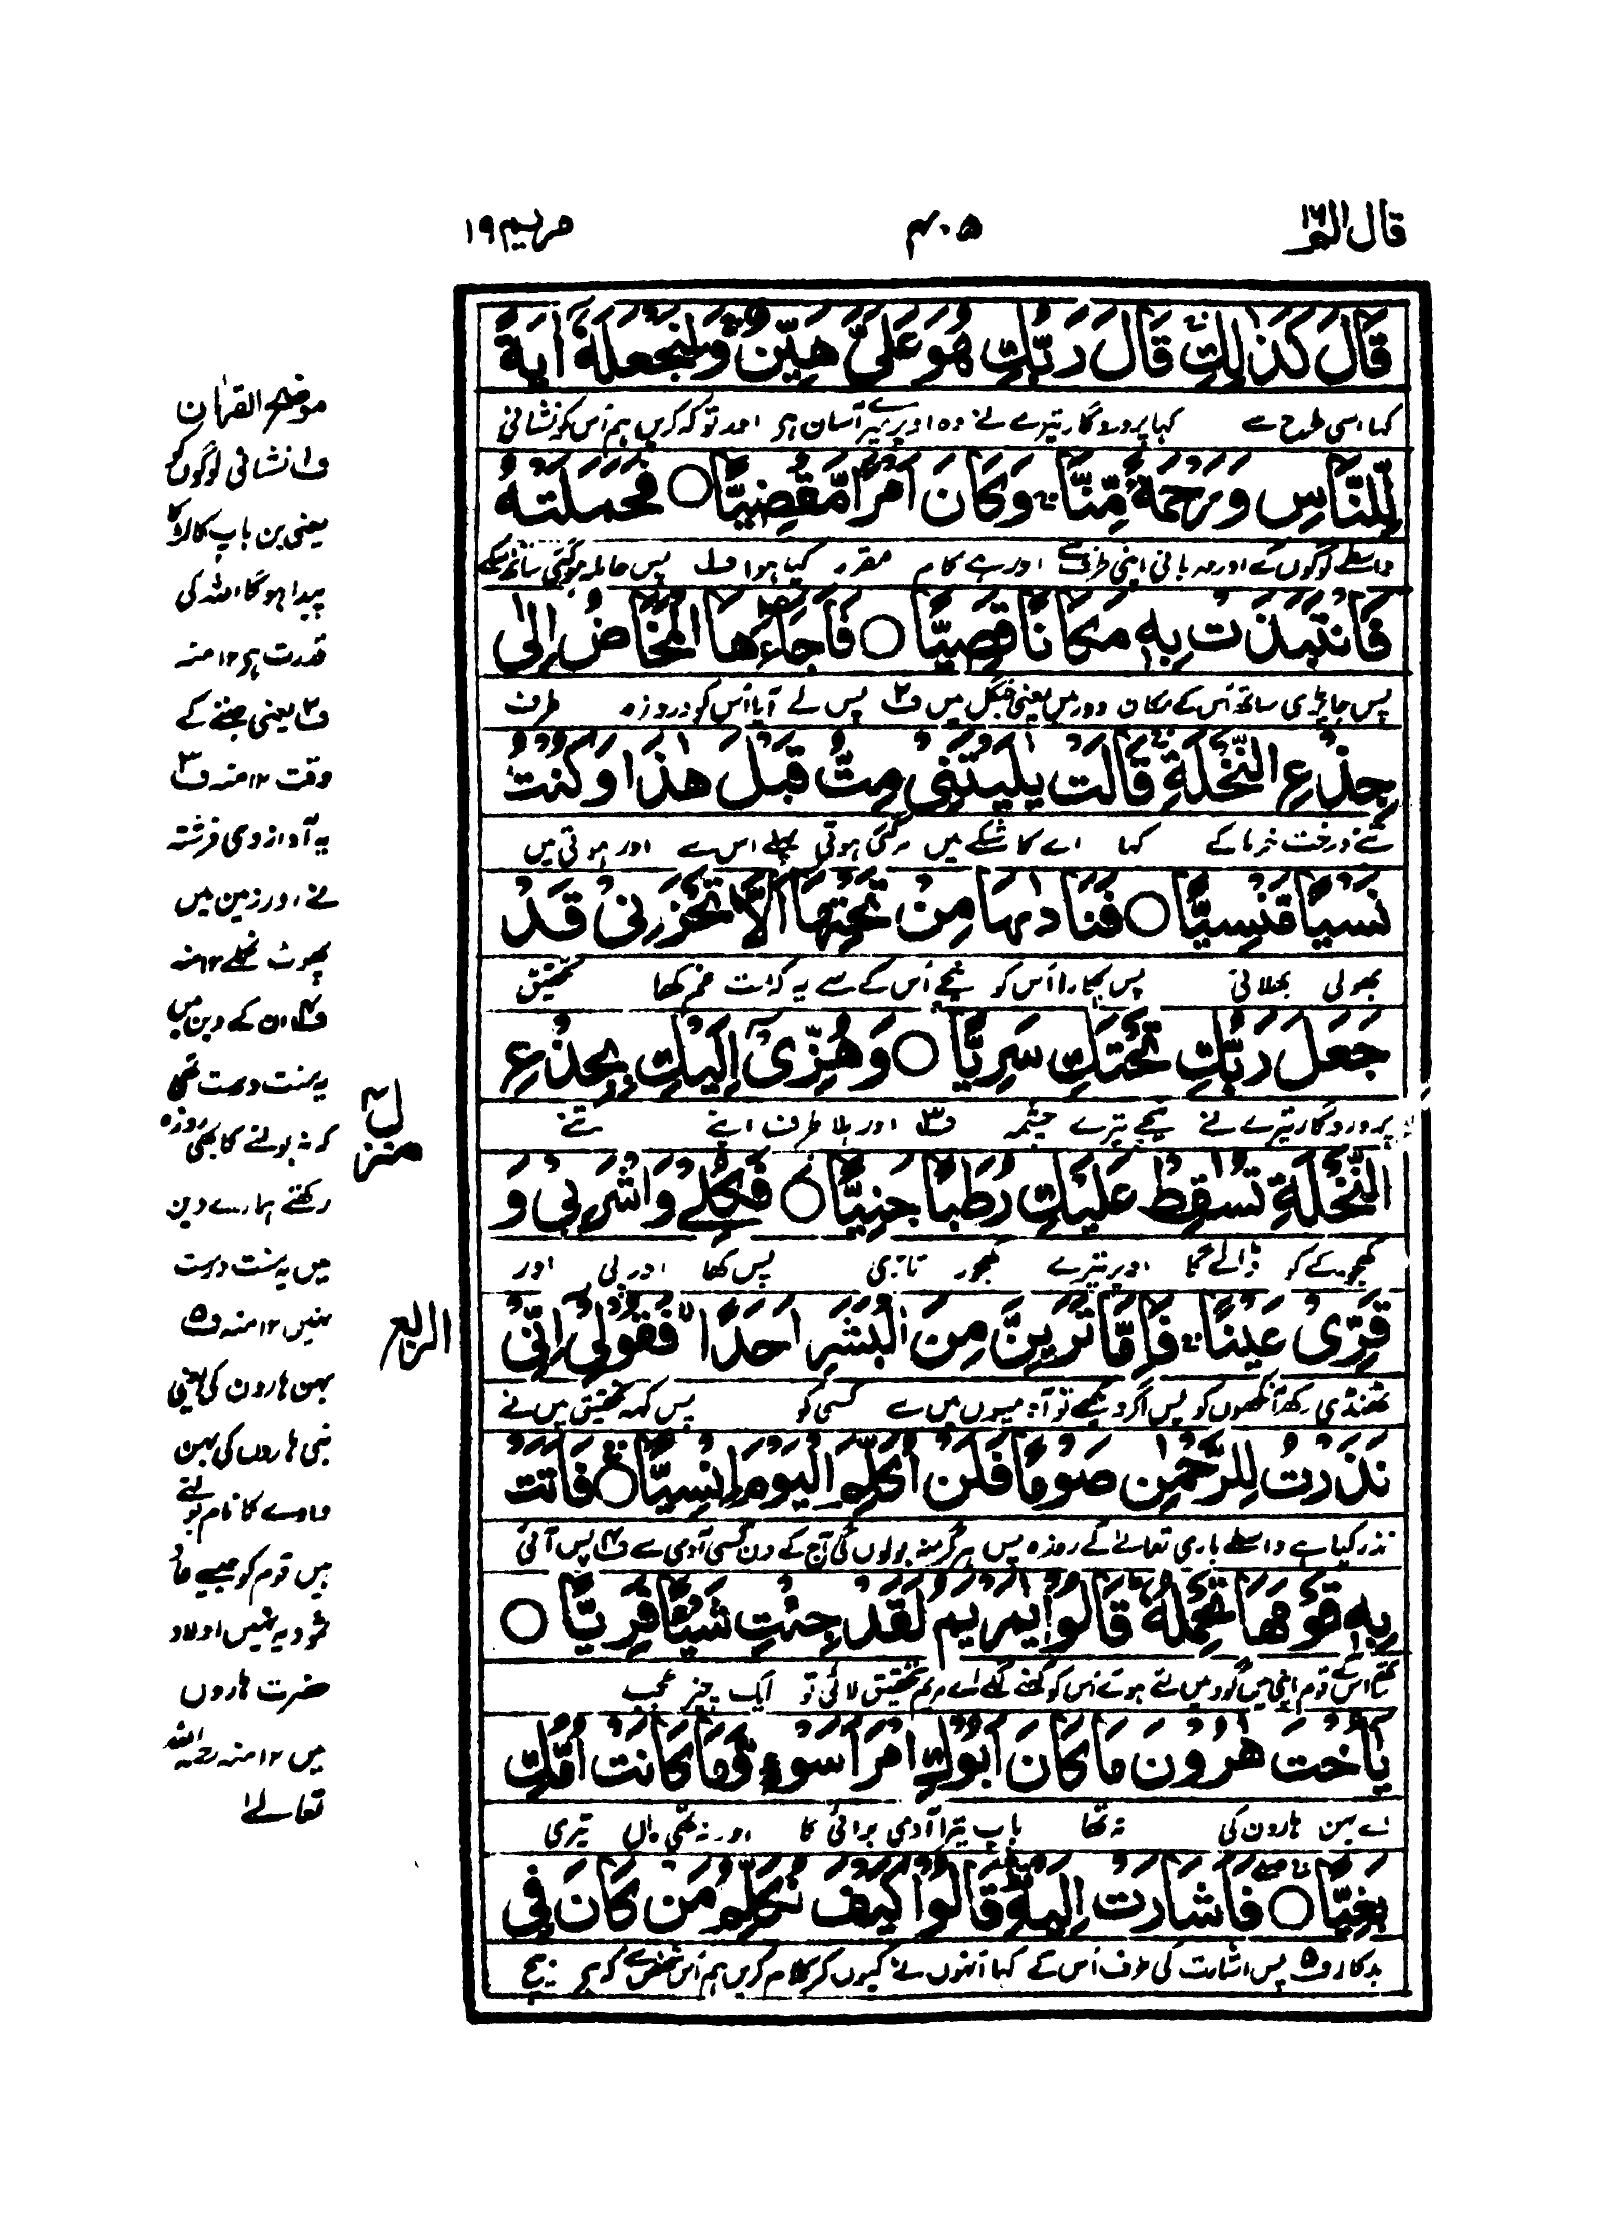 قال الم ١٦
٤٠٥
مریم ١٩
قَالَ كَذٰلِكِ قَالَ رَبُّكِ هُوَ عَلَیَّ هَيِّنٌ وَلِنَجْعَلَهٗ اٰيَةً
کہا اسی طرح سے کہا پروردگار تیرے نے وہ اوپر میرے آسان ہے اور تو کہ کریں ہم اُس کو نشانی
لِّلنَّاسِ وَرَحْمَةً مِّنَّا وَكَانَ اَمْرًا مَّقْضِيًّا ○ فَحَمَلَتْهُ
واسطے لوگوں کے اور مہربانی اپنی طرف سے اور ہے کام مقرر کیا ہوا ف۱ پس حاملہ ہوگئی ساتھ اسکے
فَانْتَبَذَتْ بِهٖ مَكَانًا قَصِيًّا ○ فَاَجَآءَهَا الْمَخَاضُ اِلٰى
پس جا پڑی ساتھ اُس کے مکان دور میں یعنی جنگل میں ف۲ پس لے آیا اُس کو دردزہ طرف
جِذْعِ النَّخْلَةِ قَالَتْ يٰلَيْتَنِیْ مِتُّ قَبْلَ هٰذَا وَكُنْتُ
تنے درخت خرما کے کہا اے کاشکے میں مرگئی ہوتی پہلے اس سے اور ہوتی میں
نَسْيًا مَّنْسِيًّا ○ فَنَادٰىهَا مِنْ تَحْتِهَا اَلَّا تَحْزَنِیْ قَدْ
بھولی بھلائی پس پکارا اُس کو نیچے اُس کے سے یہ کہ مت غم کھا تحقیق
جَعَلَ رَبُّكِ تَحْتَكِ سَرِيًّا ○ وَهُزِّیْ اِلَيْكِ بِجِذْعِ
پروردگار تیرے نے نیچے تیرے چشمہ ف۳ اور ہلا طرف اپنے تنے
النَّخْلَةِ تُسٰقِطْ عَلَيْكِ رُطَبًا جَنِيًّا ○ فَكُلِیْ وَاشْرَبِیْ وَ
کھجور کے کو ڈالے گا اوپر تیرے کھجور تازی پس کھا اور پی اور
قَرِّیْ عَيْنًا فَاِمَّا تَرَيِنَّ مِنَ الْبَشَرِ اَحَدًا فَقُوْلِیْٓ اِنِّیْ
ٹھنڈی رکھ آنکھوں کو پس اگر دیکھے تو آدمیوں میں سے کسی کو پس کہہ تحقیق میں نے
نَذَرْتُ لِلرَّحْمٰنِ صَوْمًا فَلَنْ اُكَلِّمَ الْيَوْمَ اِنْسِيًّا ○ فَاَتَتْ
نذر کیا ہے واسطے باری تعالےٰ کے روزہ پس ہرگز نہ بولوں گی آج کے دن کسی آدمی سے ف۴ پس آئی
بِهٖ قَوْمَهَا تَحْمِلُهٗ قَالُوْا يٰمَرْيَمُ لَقَدْ جِئْتِ شَيْئًا فَرِيًّا ○
اس کے قوم اپنی میں گود میں لئے ہوئے اُس کو کہنے لگے اے مریم تحقیق لائی تو ایک چیز عجب
يٰٓاُخْتَ هٰرُوْنَ مَا كَانَ اَبُوْكِ امْرَاَ سَوْءٍ وَّمَا كَانَتْ اُمُّكِ
اے بہن ہارون کی نہ تھا باپ تیرا آدمی برائی کا اور نہ تھی ماں تیری
بَغِيًّا ○ فَاَشَارَتْ اِلَيْهِ قَالُوْا كَيْفَ نُكَلِّمُ مَنْ كَانَ فِی
بدکار ف۵ پس اشارت کی طرف اُس کے کہا اُنہوں نے کیوں کر کلام کریں ہم اُس شخص سے کہ ہے بیچ
موضح القرآن
ف۱ نشانی لوگوں کو
یعنی بن باپ کا لڑکا
پیدا ہوگا اللہ کی
قدرت ہے ١٢ منہ
ف۲ یعنی جننے کے
وقت ١٢ منہ ف۳
یہ آواز دی فرشتہ
نے اور زمین میں
پھوٹ نکلے ١٢ منہ
ف۴ ان کے دین میں
یہ منت درست تھی
کہ نہ بولنے کا بھی روزہ
رکھتے ہمارے دین
میں یہ منت درست
نہیں ١٢ منہ ف۵
بہن ہارون کی یعنی
نبی ہاروں کی بہن
دادے کا نام بولتے
ہیں قوم کو جیسے عاد
ثمود یہ تھیں اولاد
حضرت ہاروں
میں ١٢ منہ رحمہ اللہ
تعالےٰ
منزل
الربع